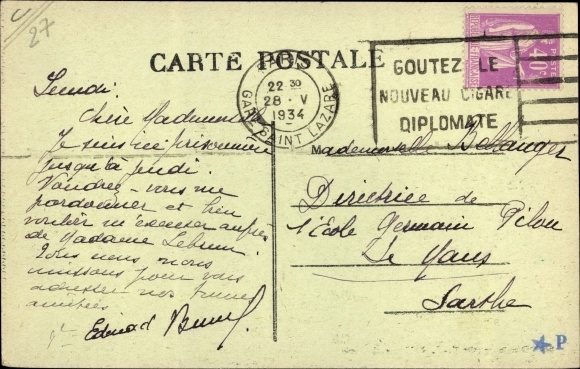 27
CARTE POSTALE
PARIS
22 30
28 · V
1934
GARE SAINT LAZARE
GOUTEZ LE
NOUVEAU CIGARE
DIPLOMATE
40c
Lundi.
Chère Mademoiselle
Je suis ici prisonnier
jusqu'à jeudi.
Voudrez-vous me
pardonner et bien
vouloir m'excuser auprès
de Madame Lebrun.
nous nous
unissons pour vous
adresser nos bonnes
amitiés
Edouard
Mademoiselle Bellanger
Directrice de
l'Ecole Germain Pilon
Le Mans
Sarthe
P